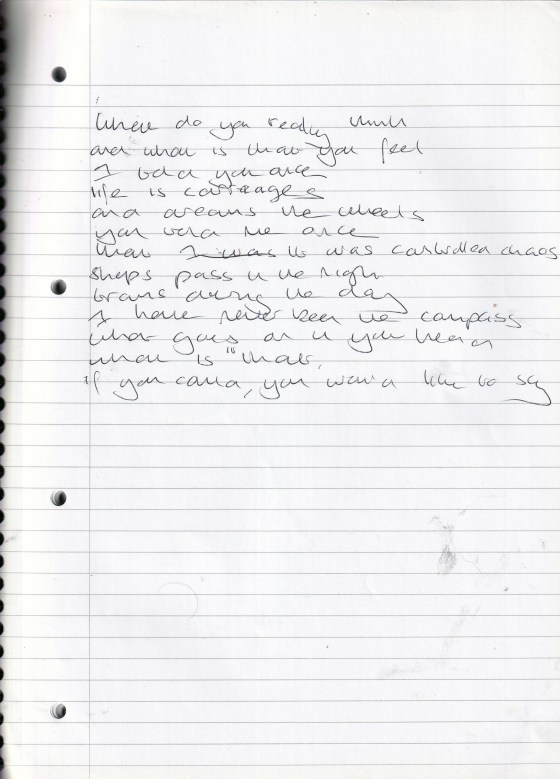 Where do you really think
and what is that you feel
I told you once
life is carriages
and dreams the wheels
you told me once
that I was it was controlled chaos
ships pass in the night
trains during the day
I have never been the compass
what goes on in your head
what is it that,
if you could, you would like to say